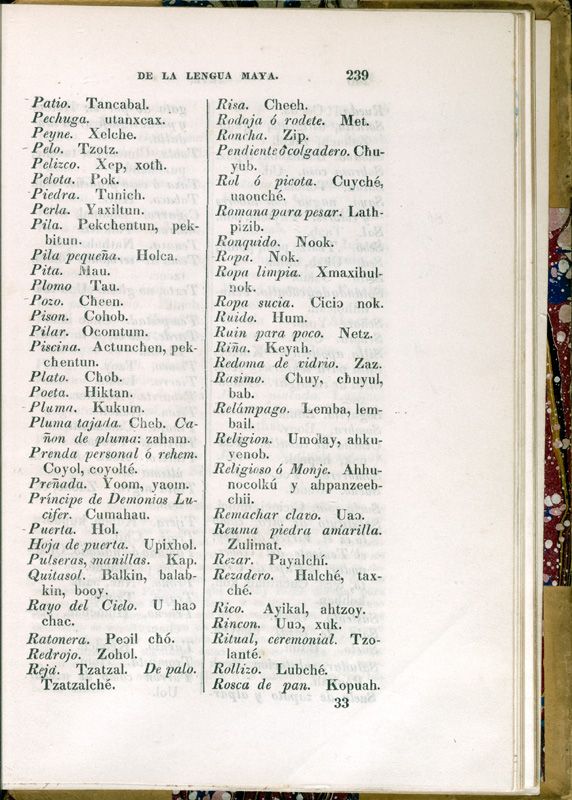 DE LA LENGUA MAYA. 239
Patio. Tancabal.
Pechuga. utanxcax.
Peyne. Xelche.
Pelo. Tzotz.
Pelizco. Xep, xotħ.
Pelota. Pok.
Piedra. Tunich.
Perla. Yaxiltun.
Pila. Pekchentun, pek-
bitun.
Pila pequeña. Holca.
Pita. Mau.
Plomo Tau.
Pozo. Cheen.
Pison. Cohob.
Pilar. Ocomtum.
Piscina. Actunchen, pek-
chentun.
Plato. Cħob.
Poeta. Hiktan.
Pluma. Kukum.
Pluma tajada. Cheb. Ca-
ñon de pluma: zaham.
Prenda personal ó rehem.
Coyol, coyolté.
Preñada. Yoom, yaom.
Príncipe de Demonios Lu-
cifer. Cumahau.
Puerta. Hol.
Hoja de puerta. Upixhol.
Pulseras, manillas. Kap.
Quitasol. Balkin, balab-
kin, booy.
Rayo del Cielo. U haɔ
chac.
Ratonera. Peɔil cħó.
Redrojo. Zohol.
Reja. Tzatzal. De palo.
Tzatzalché.
Risa. Cheeh.
Rodaja ó rodete. Met.
Roncha. Zip.
Pendiente ó colgadero. Cħu-
yub.
Rol ó picota. Cuyché,
uaouché.
Romana para pesar. Lath-
pizib.
Ronquido. Nook.
Ropa. Nok.
Ropa limpia. Xmaxihul-
nok.
Ropa sucia. Ciciɔ nok.
Ruido. Hum.
Ruin para poco. Netz.
Riña. Keyah.
Redoma de vidrio. Zaz.
Rasimo. Chuy, chuyul,
bab.
Relámpago. Lemba, lem-
bail.
Religion. Umolay, ahku-
yenob.
Religioso ó Monje. Ahhu-
nocolkú y ahpanzeeb-
chii.
Remachar clavo. Uaɔ.
Reuma piedra amarilla.
Zulimat.
Rezar. Payalchí.
Rezadero. Halché, tax-
ché.
Rico. Ayikal, ahtzoy.
Rincon. Uuɔ, xuk.
Ritual, ceremonial. Tzo-
lanté.
Rollizo. Lubché.
Rosca de pan. Kopuah.
33